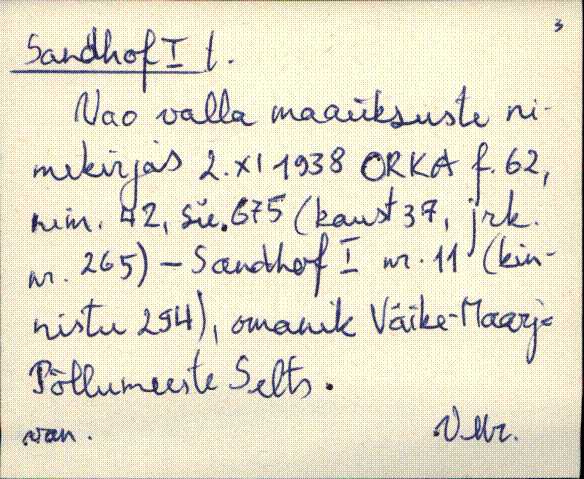 3
Sandhof I t.
Vao valla maaüksuste ni-
mekirjas 2. XI 1938 ORKA f. 62,
nim. 42, säe. 675 (kaust 37, jrk.
nr. 265) – Sandhof I nr. 11 (kin-
nistu 294), omanik Väike-Maarja
Põllumeeste Selts.
van.